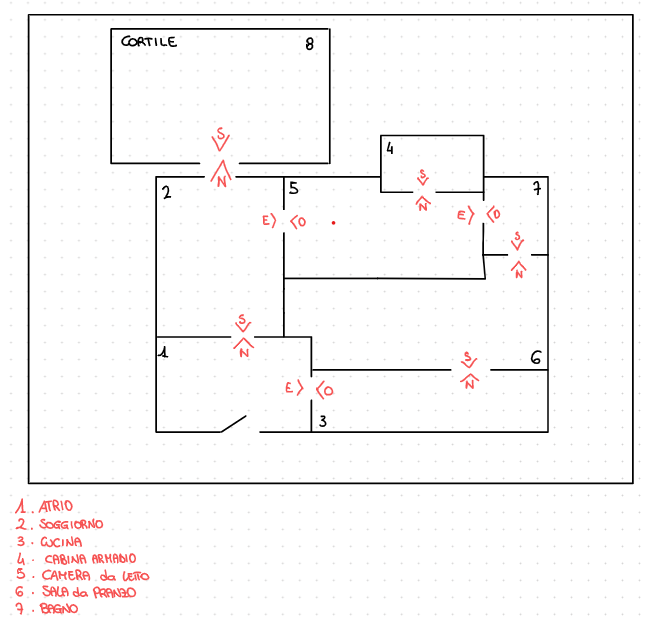 CORTILE 8
S
N
4
2 5 7
S
N
E> <O
E> <O
S
N
S
N
1
S
N
6
E> <O
3
1. ATRIO
2. SOGGIORNO
3. CUCINA
4. CABINA ARMADIO
5. CAMERA da LETTO
6. SALA da PRANZO
7. BAGNO